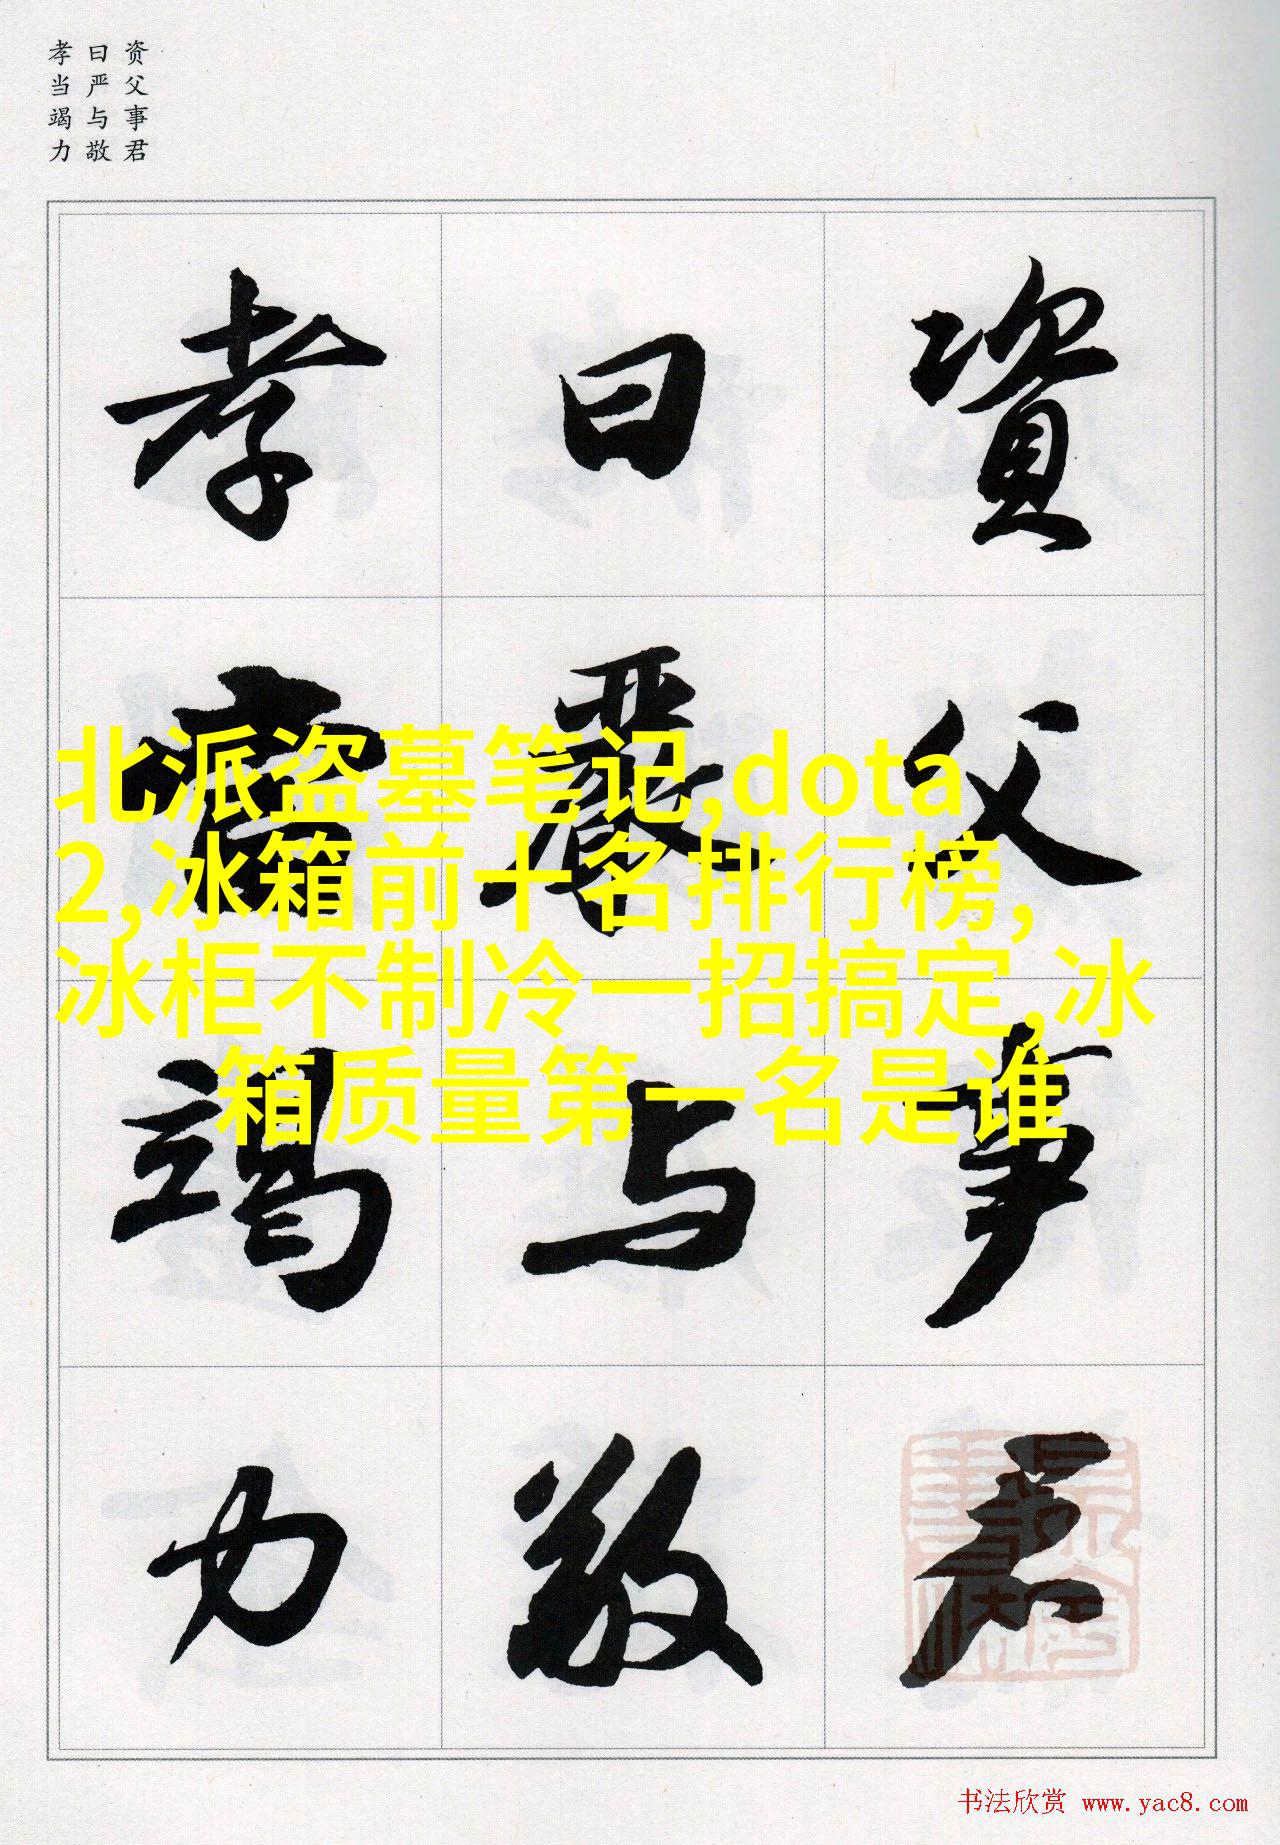 资父事君
曰严与敬
孝当竭力
資父事君
曰嚴与敬
孝當竭力
北派盗墓笔记,dota
2,冰箱前十名排行榜,
冰柜不制冷一招搞定,冰
箱质量第一名是谁
书法欣赏 www.yac8.com